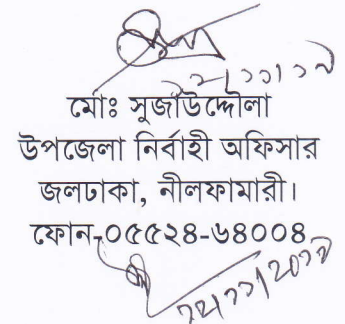 মোঃ সুজাউদ্দৌলা
উপজেলা নির্বাহী অফিসার
জলঢাকা, নীলফামারী।
ফোন-০৫৫২৪-৬৪০০৪